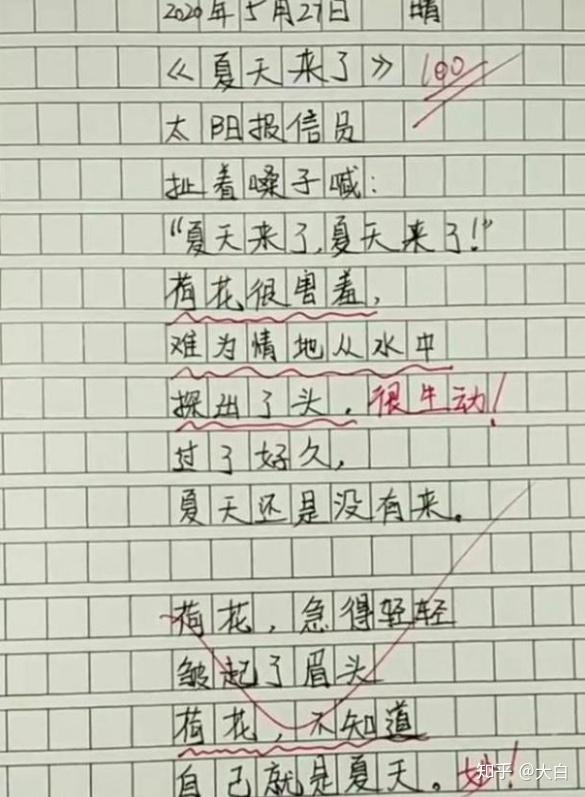 2020年5月27日 晴
《夏天来了》 100
太阳报信员
扯着嗓子喊：
“夏天来了，夏天来了！”
荷花很害羞，
难为情地从水中
探出了头。很生动！
过了好久，
夏天还是没有来。
荷花，急得轻轻
皱起了眉头
荷花，不知道
自己就是夏天。妙！
知乎 @大白